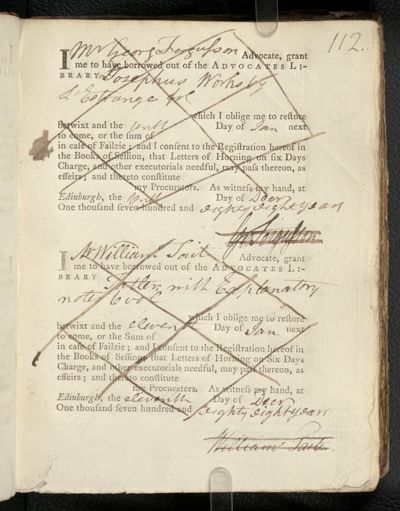 112.
I Mr George Fergusson Advocate, grant
me to have borrowed out of the ADVOCATES LI-
BRARY Josephus Works by
L'Estrange fol
which I oblige me to restore
betwixt and the tenth Day of Jan next
to come, or the sum of
in case of Failzie; and I consent to the Registration hereof in
the Books of Session, that Letters of Horning on six Days
Charge, and other executorials needful, may pass thereon, as
effeirs; and thereto constitute
my Procurators. As witness my hand, at
Edinburgh, the Day of Decr
One thousand seven hundred and eighty eight years
Fergusson
I Mr William Tait Advocate, grant
me to have borrowed out of the ADVOCATES LI-
BRARY Tatler with Explanatory
notes 6 vol
which I oblige me to restore
betwixt and the eleventh Day of Jan next
to come, or the Sum of
in case of Failzie; and I consent to the Registration hereof in
the Books of Session, that Letters of Horning on Six Days
Charge, and other executorials needful, may pass thereon, as
effeirs; and thereto constitute
my Procurators. As witness my hand, at
Edinburgh, the eleventh Day of Decr
One thousand seven hundred and eighty eight years
William Tait